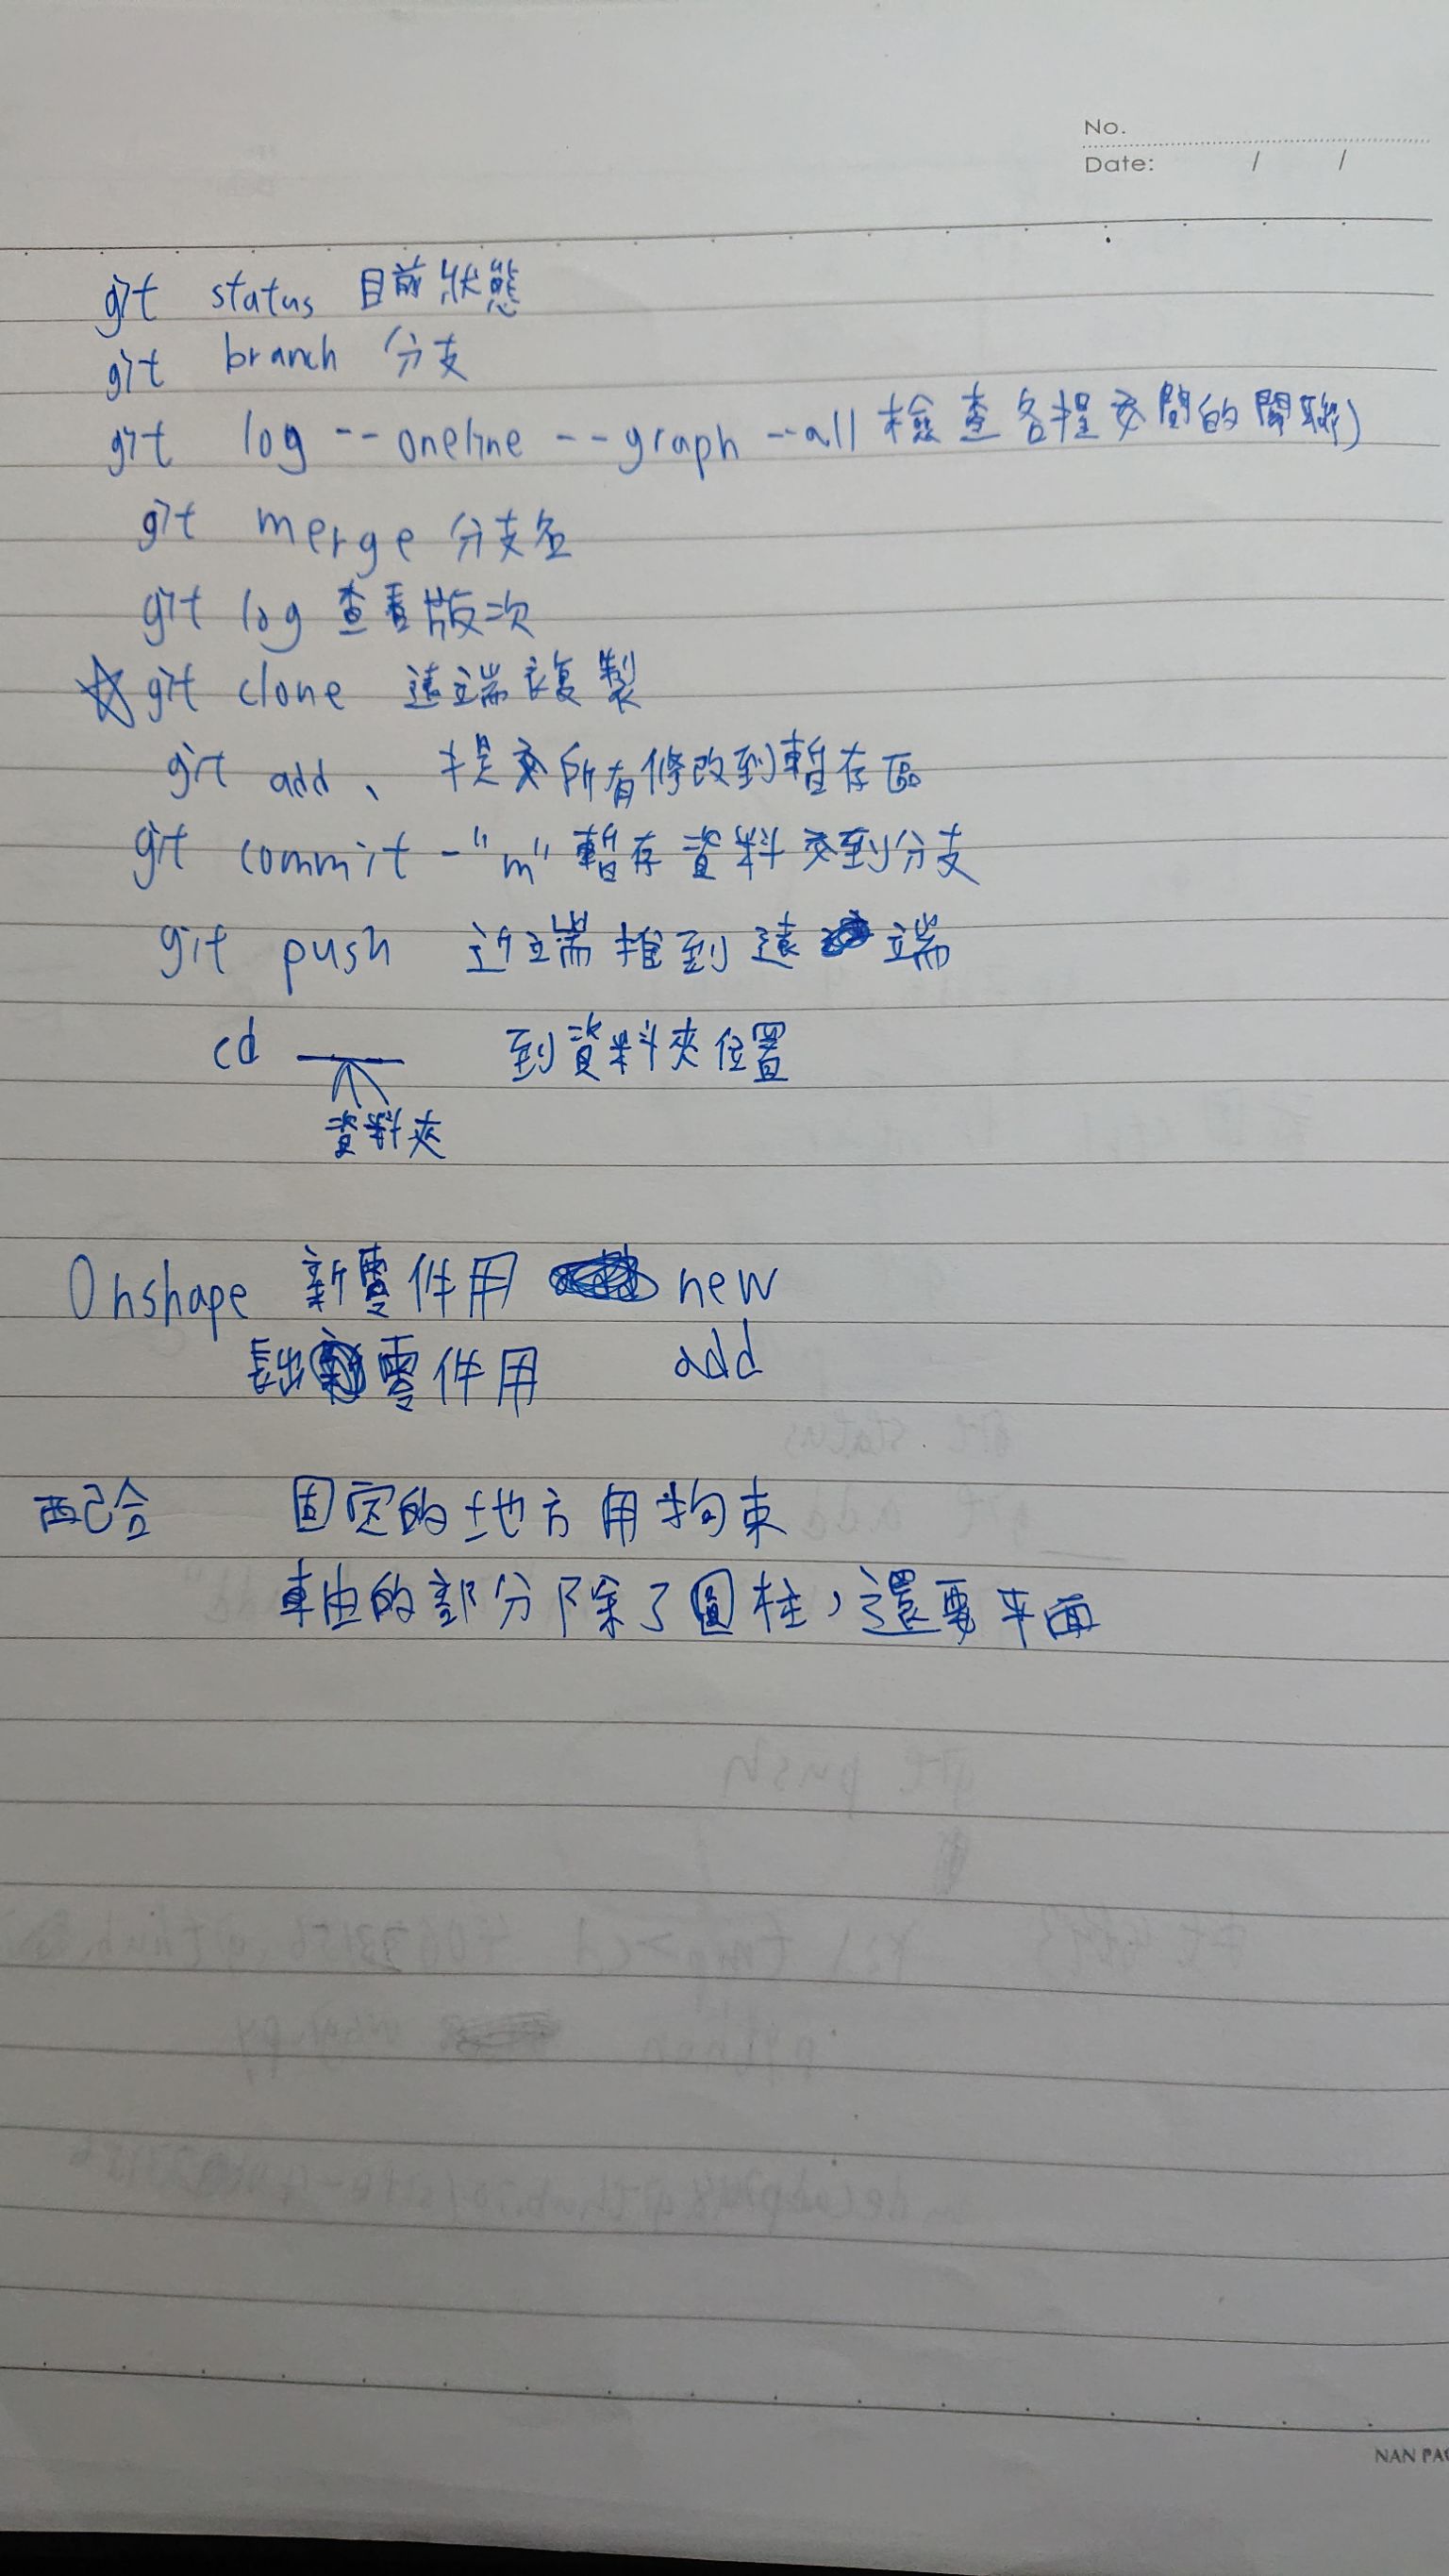 No.
Date: / /
git status 目前狀態
git branch 分支
git log --oneline --graph --all 檢查各提交間的關聯)
git merge 分支名
git log 查看版次
☆ git clone 遠端複製
git add、 提交所有修改到暫存區
git commit -"m" 暫存資料交到分支
git push 近端推到遠端
cd ___ 到資料夾位置
資料夾
Onshape 新零件用 new
長出零件用 add
配合 固定的地方用拘束
軸的部分除了圓柱,還要平面
NAN PA